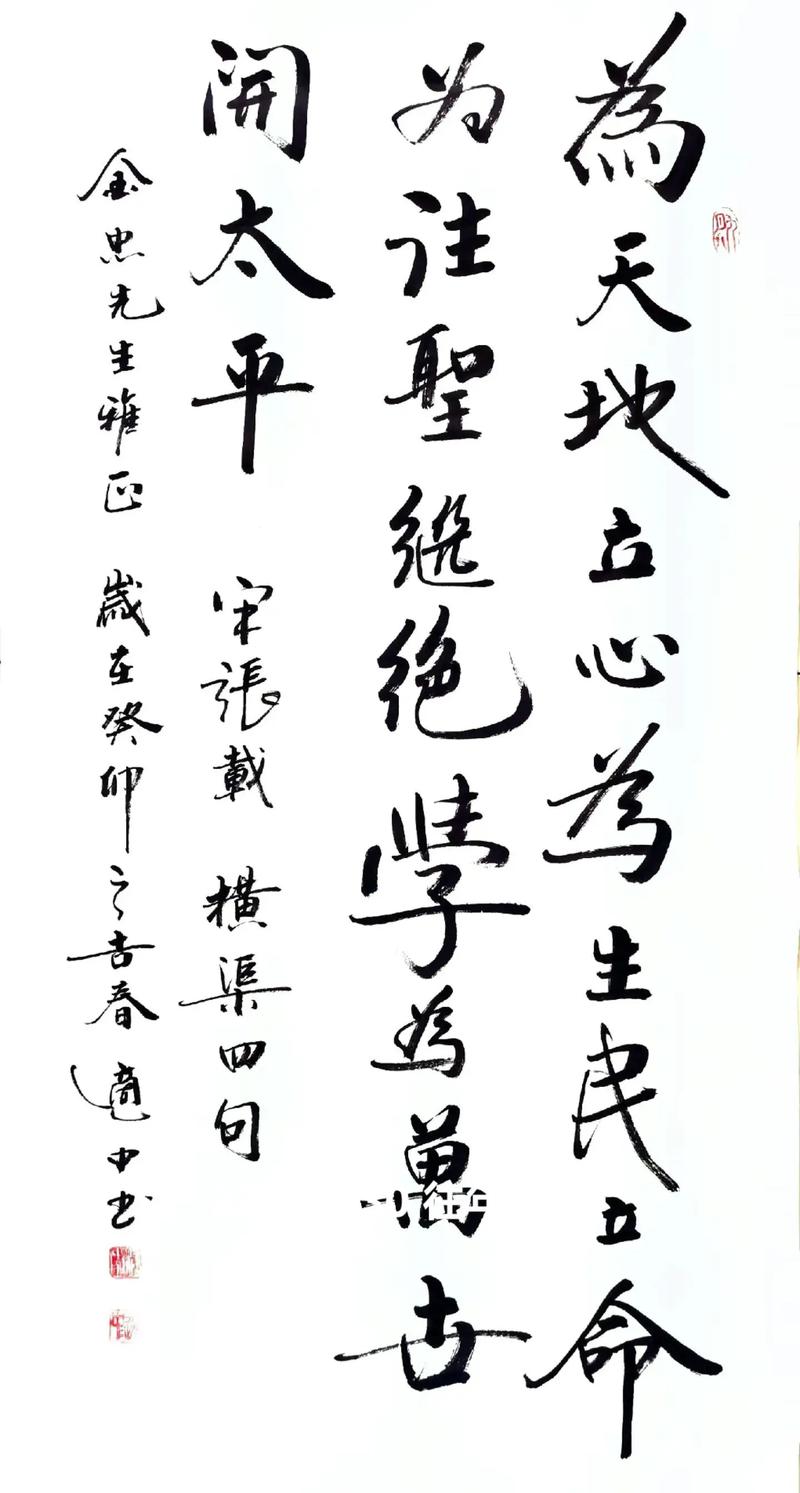 為天地立心為生民立命
为往聖繼絕學為萬世
開太平 宋張載 橫渠四句
金忠先生雅正 歲在癸卯之吉春 適中书